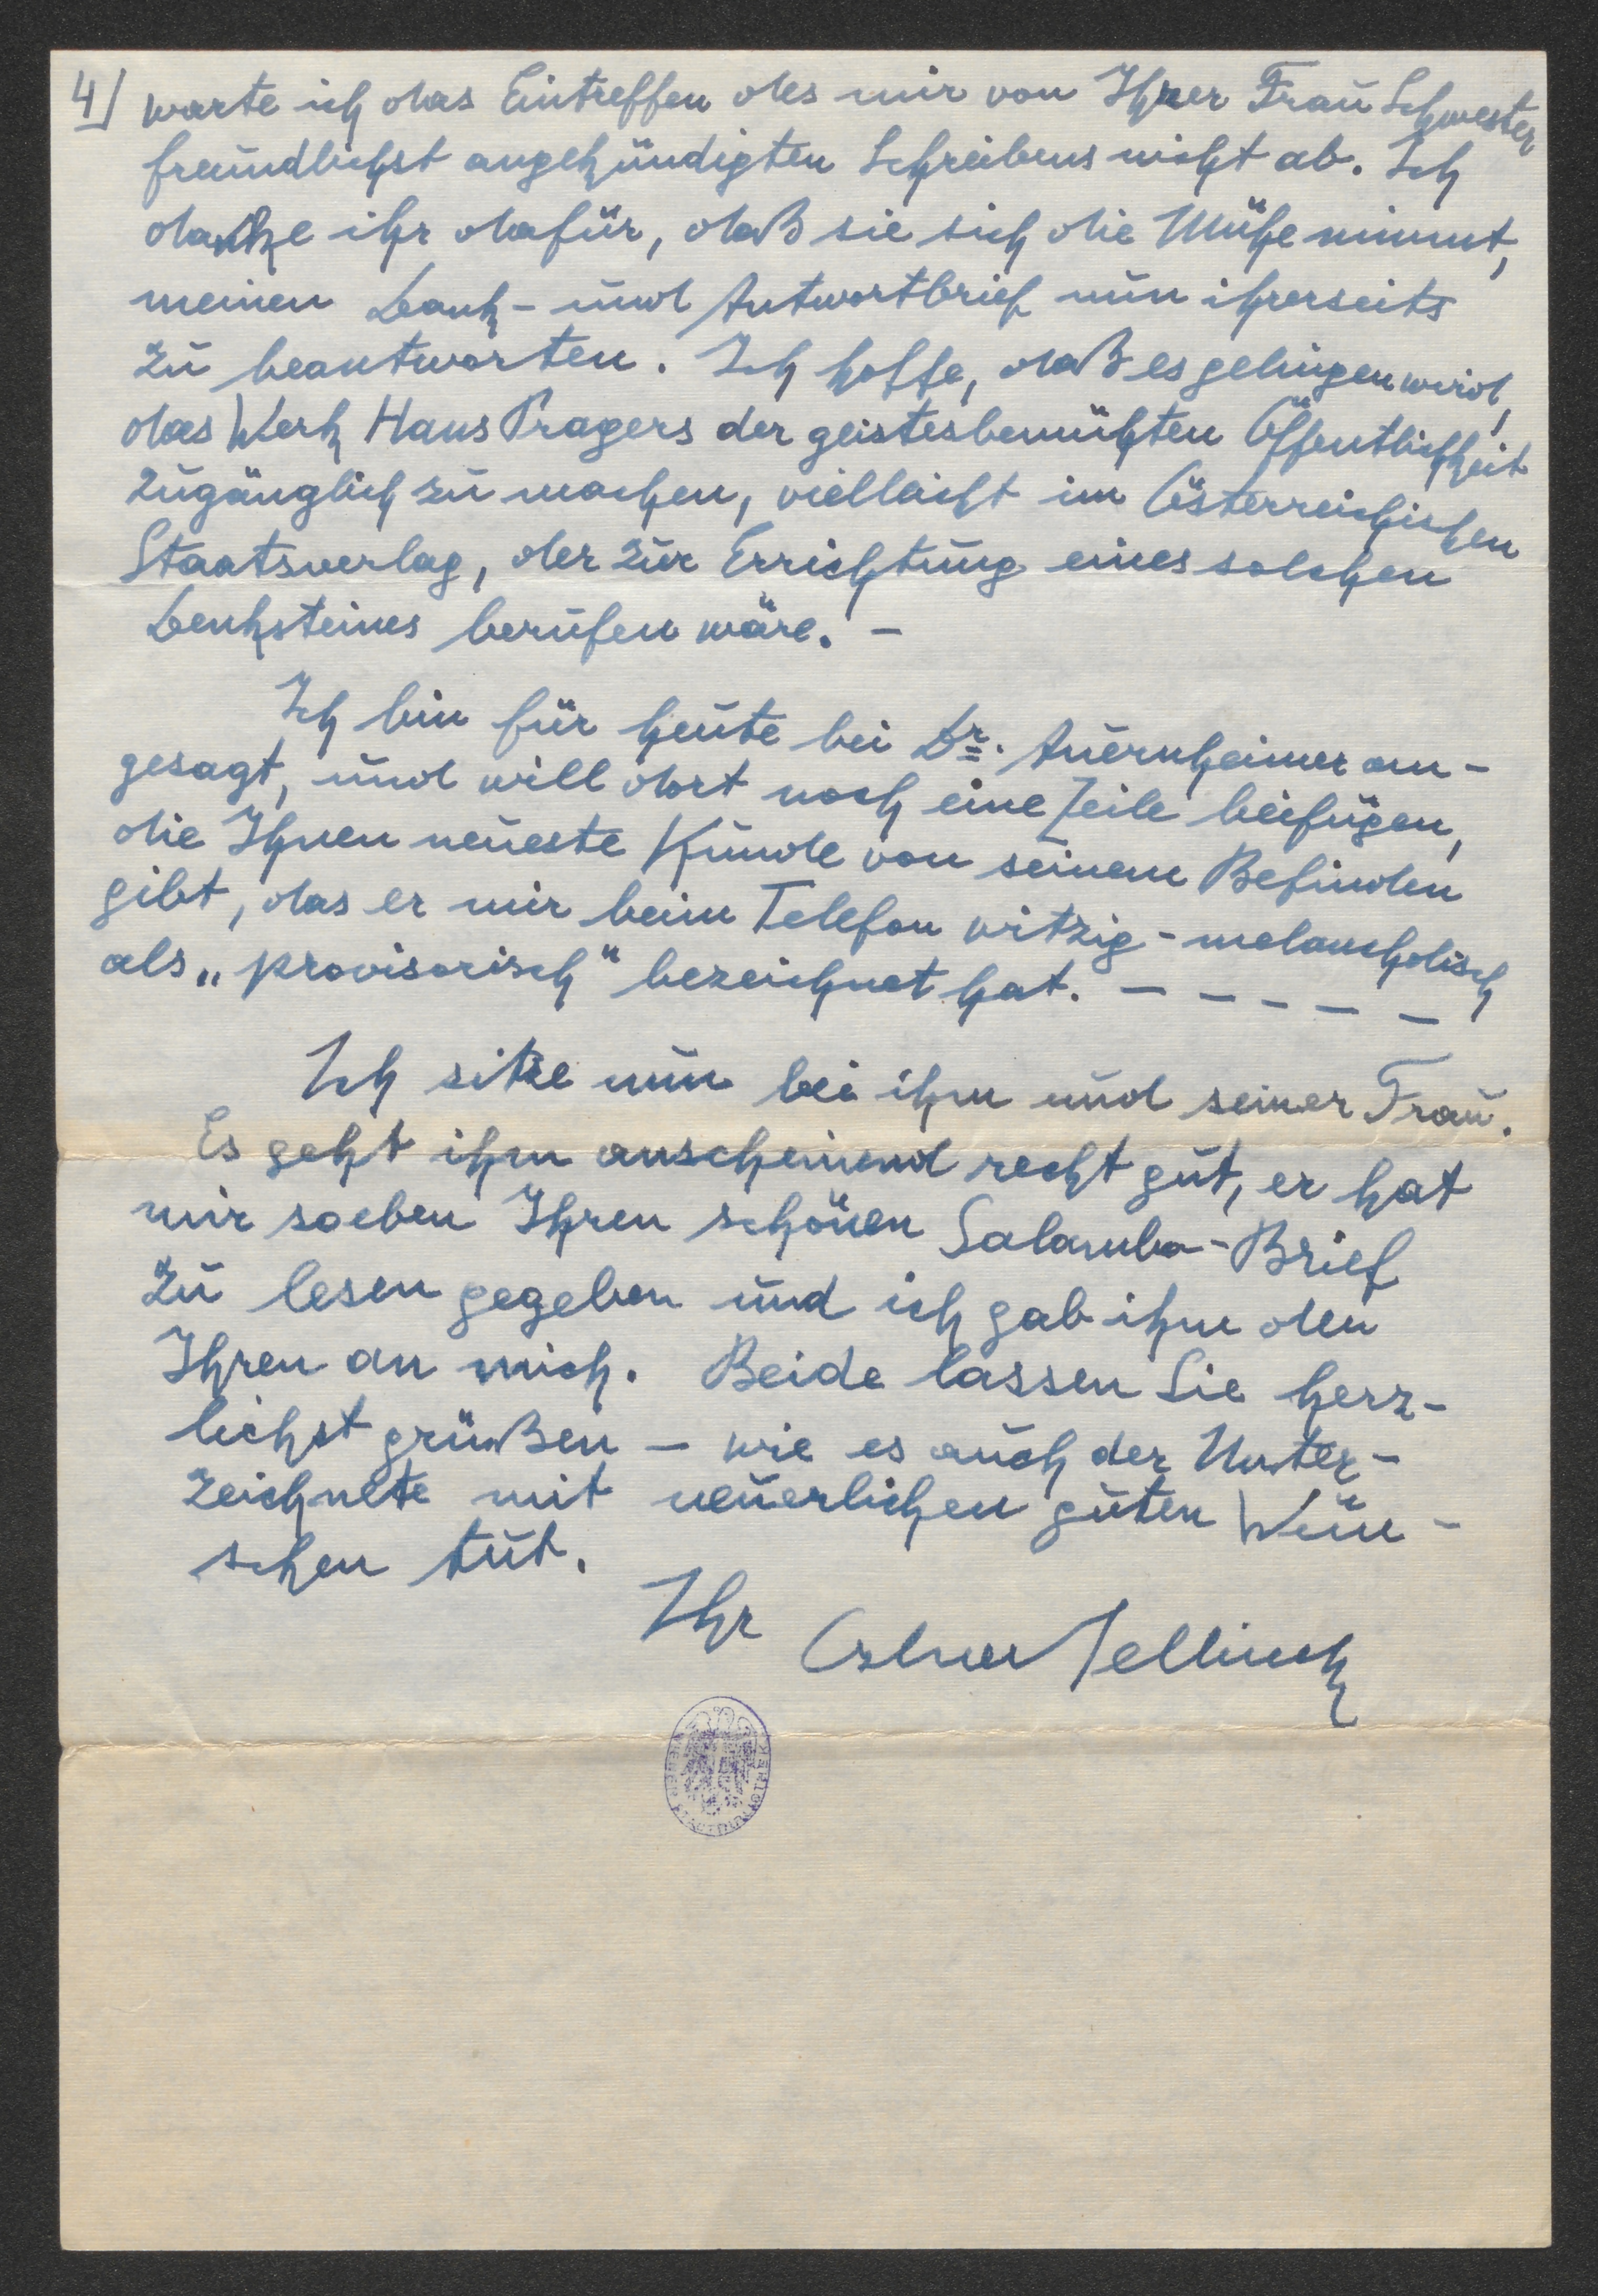 4/ warte ich das Eintreffen des mir von Ihrer Frau Schwester
freundlichst angekündigten Schreibens nicht ab. Ich
danke ihr dafür, daß sie sich die Mühe nimmt,
meinen Dank- und Antwortbrief nun ihrerseits
zu beantworten. Ich hoffe, daß es gelingen wird,
das Werk Hans Pragers der geistesbemühten Öffentlichkeit
zugänglich zu machen, vielleicht im Österreichischen
Staatsverlag, der zur Errichtung eines solchen
Denksteines berufen wäre. –
Ich bin für heute bei Dr. Auernheimer an-
gesagt, und will dort noch eine Zeile beifügen,
die Ihnen neueste Kunde von seinem Befinden
gibt, das er mir beim Telefon witzig-melancholisch
als „provisorisch" bezeichnet hat. – – – – –
Ich sitze nun bei ihm und seiner Frau.
Es geht ihm anscheinend recht gut, er hat
mir soeben Ihren schönen Salambo-Brief
zu lesen gegeben und ich gab ihm den
Ihren an mich. Beide lassen Sie herz-
lichst grüßen – wie es auch der Unter-
zeichnete mit neuerlichen guten Wün-
schen tut.
Ihr Oskar Jellinek